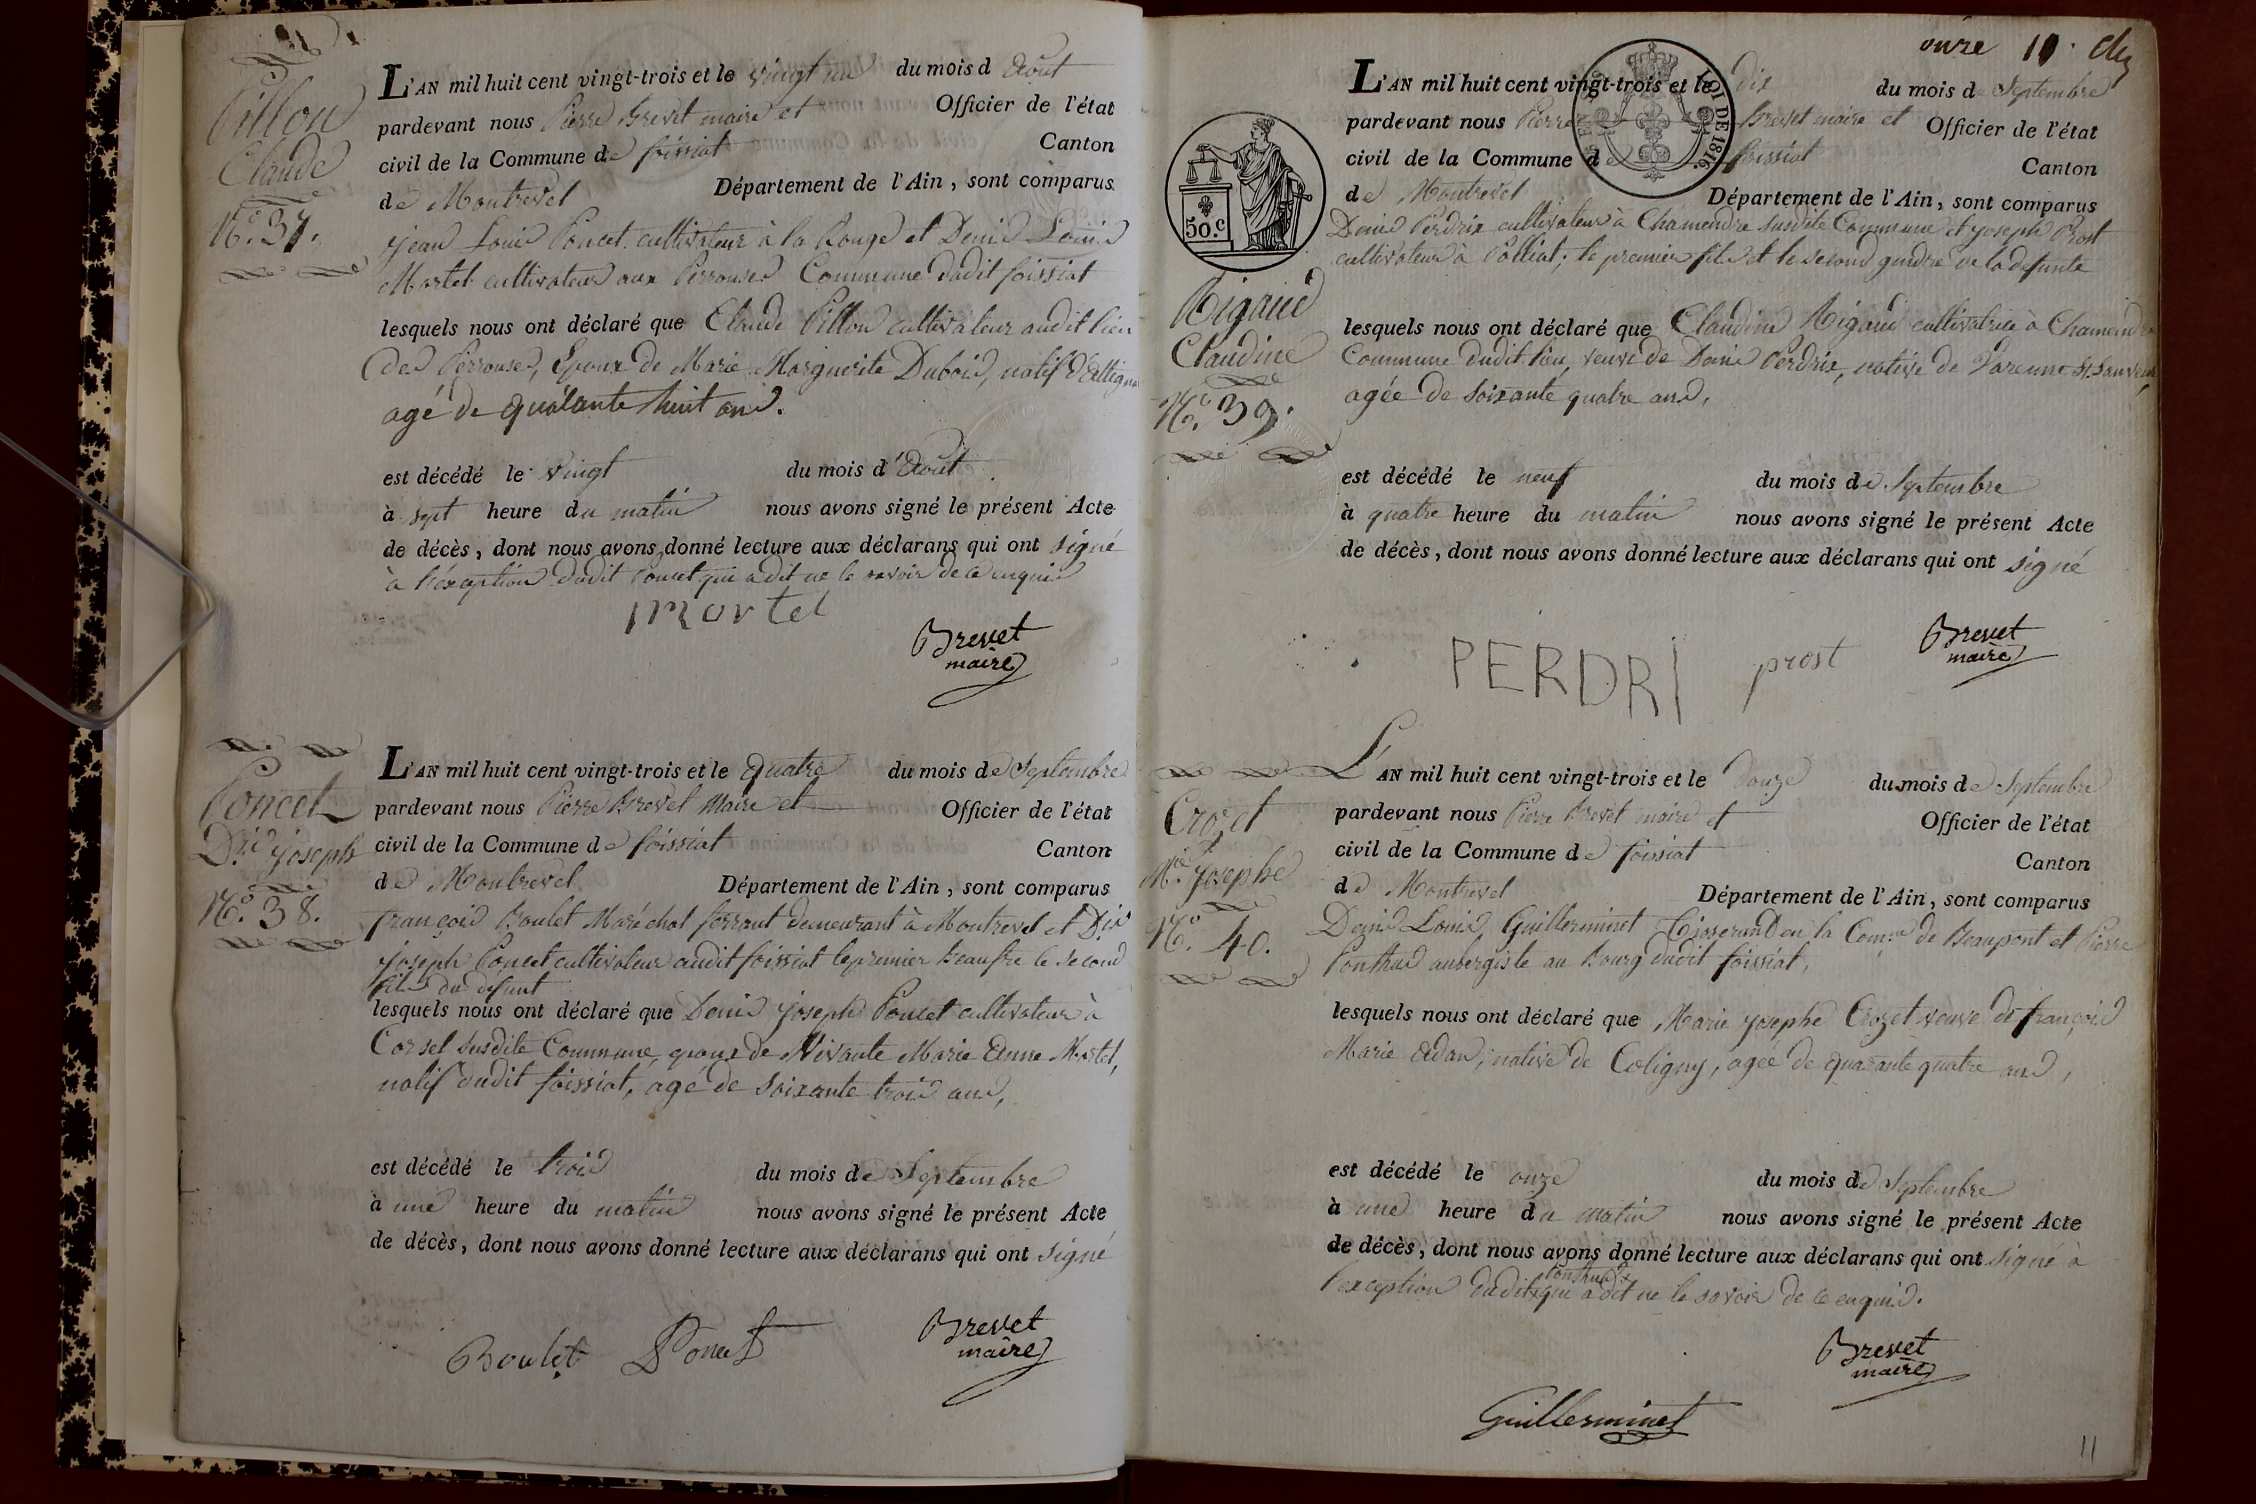 Pillon
Claude
N.° 37.
L'AN mil huit cent vingt-trois et le vingt un du mois d Août
pardevant nous Pierre Brevet maire et Officier de l'état
civil de la Commune de foissiat Canton
de Montrevel Département de l'Ain, sont comparus
jean Louis Poncet cultivateur à la Rouge et Denis Louis
Martel cultivateur aux Perrouses Commune dudit foissiat
lesquels nous ont déclaré que Claude Pillon cultivateur audit lieu
des Perrouses, Epoux de Marie Marguerite Dubois, natif
agé de quarante huit ans.
est décédé le vingt du mois d'Août
à sept heure du matin nous avons signé le présent Acte
de décès, dont nous avons donné lecture aux déclarans qui ont signé
à l'éxception dudit Poncet qui a dit ne le savoir de ce enquis
martel
Brevet
maire
Poncet
D.is joseph
N.° 38.
L'AN mil huit cent vingt-trois et le quatre du mois de Septembre
pardevant nous Pierre Brevet Maire et Officier de l'état
civil de la Commune de foissiat Canton
de Montrevel Département de l'Ain, sont comparus
françois Boulet Maréchal ferrant demeurant à Montrevel et D.is
joseph Poncet cultivateur audit foissiat le premier beaufre le second
fils du défunt
lesquels nous ont déclaré que Denis joseph Poncet cultivateur à
Corsel susdite Commune, epoux de Vivante Marie Anne Martel,
natif dudit foissiat, agé de soixante trois ans,
est décédé le trois du mois de Septembre
à une heure du matin nous avons signé le présent Acte
de décès, dont nous avons donné lecture aux déclarans qui ont signé
Boulet Poncet
Brevet
maire
onze 11.
LOI DE 1816.
50.c
Rigaud
Claudine
N.° 39.
L'AN mil huit cent vingt-trois et le dix du mois de Septembre
pardevant nous Pierre Brevet maire et Officier de l'état
civil de la Commune de foissiat Canton
de Montrevel Département de l'Ain, sont comparus
Denis Perdrix cultivateur à Chamendre susdite Commune et joseph Prost
cultivateur à Polliat; le premier fils et le second gendre de la defunte
lesquels nous ont déclaré que Claudine Rigaud cultivatrice à Chamendre
Commune dudit lieu, veuve de Denis Perdrix, native de Varenne St. Sauveur,
agée de soixante quatre ans,
est décédé le neuf du mois de Septembre
à quatre heure du matin nous avons signé le présent Acte
de décès, dont nous avons donné lecture aux déclarans qui ont signé
PERDRI prost
Brevet
maire
Crozet
M.ie Josephe
N.° 40.
L'AN mil huit cent vingt-trois et le Douze du mois de Septembre
pardevant nous Pierre Brevet maire et Officier de l'état
civil de la Commune de foissiat Canton
de Montrevel Département de l'Ain, sont comparus
Denis Louis Guillerminet Tisserand en la Com.ne de Beaupont et Pierre
Ponthus aubergiste au Bourg dudit foissiat,
lesquels nous ont déclaré que Marie josephe Crozet veuve de françois
Marie Adan, native de Coligny, agée de quarante quatre ans,
est décédé le onze du mois de Septembre
à une heure du matin nous avons signé le présent Acte
de décès, dont nous avons donné lecture aux déclarans qui ont signé à
Ponthus
l'exception dudit qui a dit ne le savoir de ce enquis.
Brevet
maire
Guillerminet
11